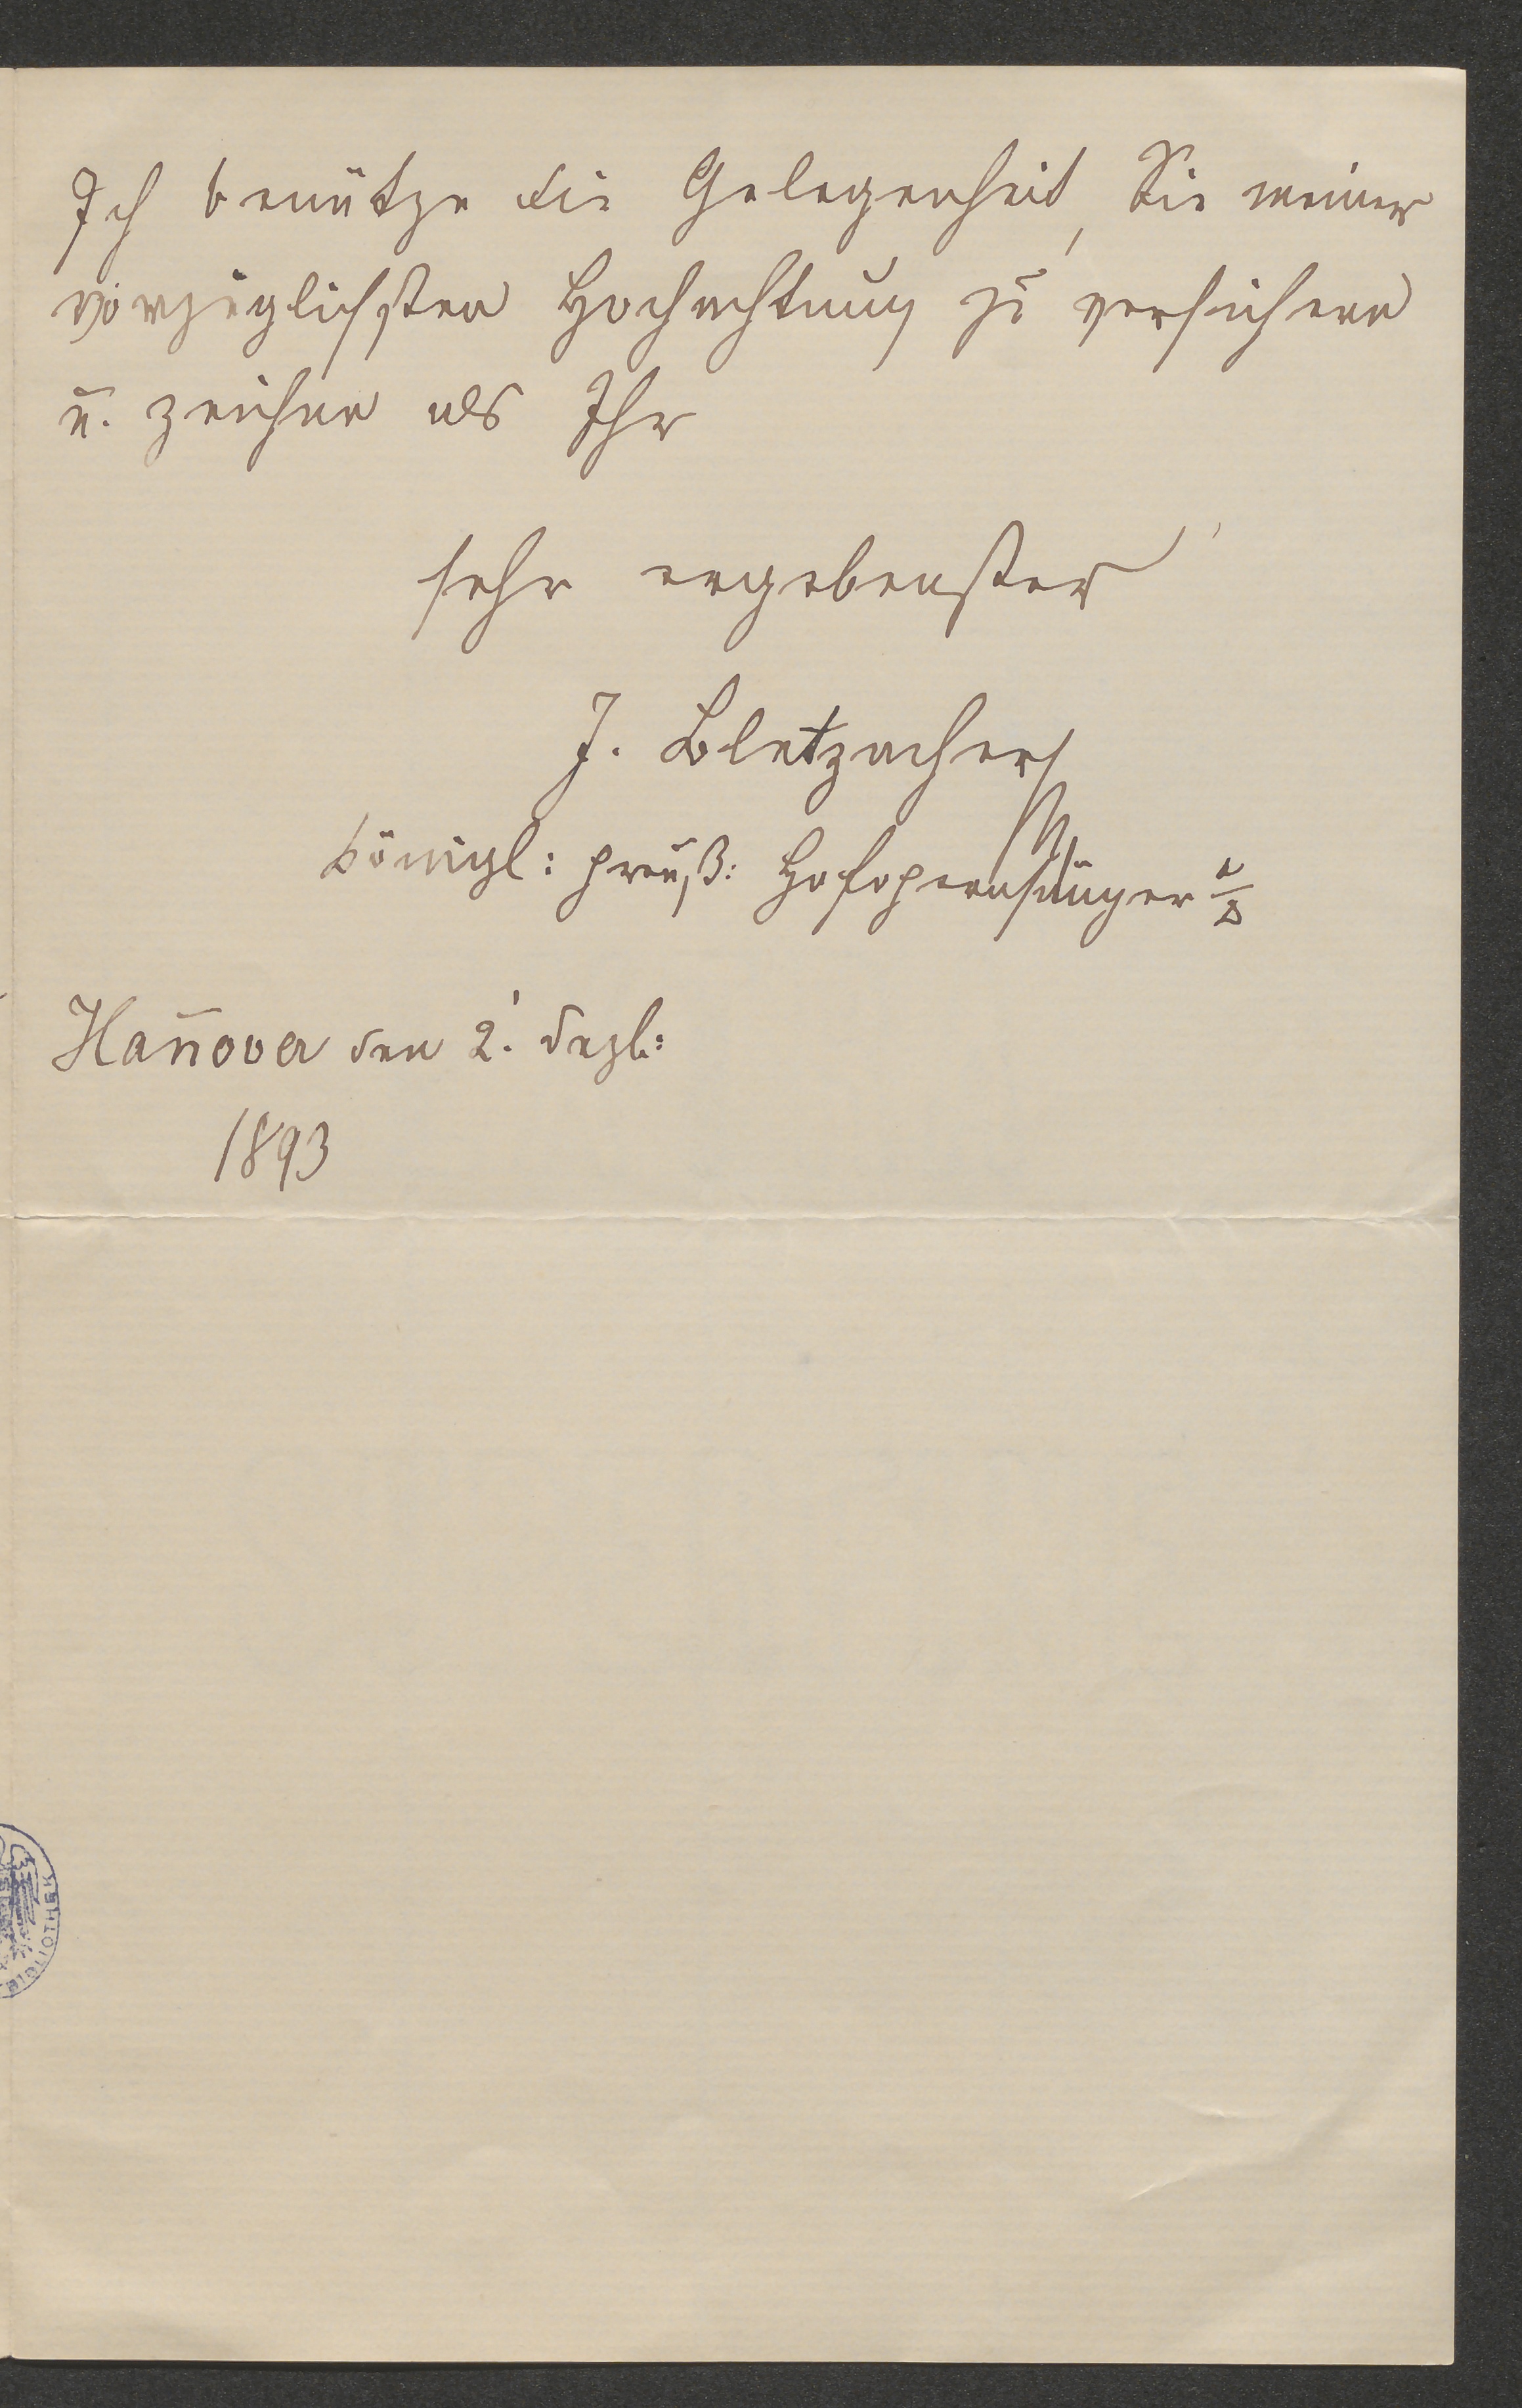 Ich benütze die Gelegenheit, Sie meiner
vorzüglichsten Hochachtung zu versichern
u. zeichne als Ihr
sehr ergebenster
J. Bletzacher
königl: preuß: Hofopernsänger
Hañover den 2. Dezb:
1893
BIBLIOTHEK